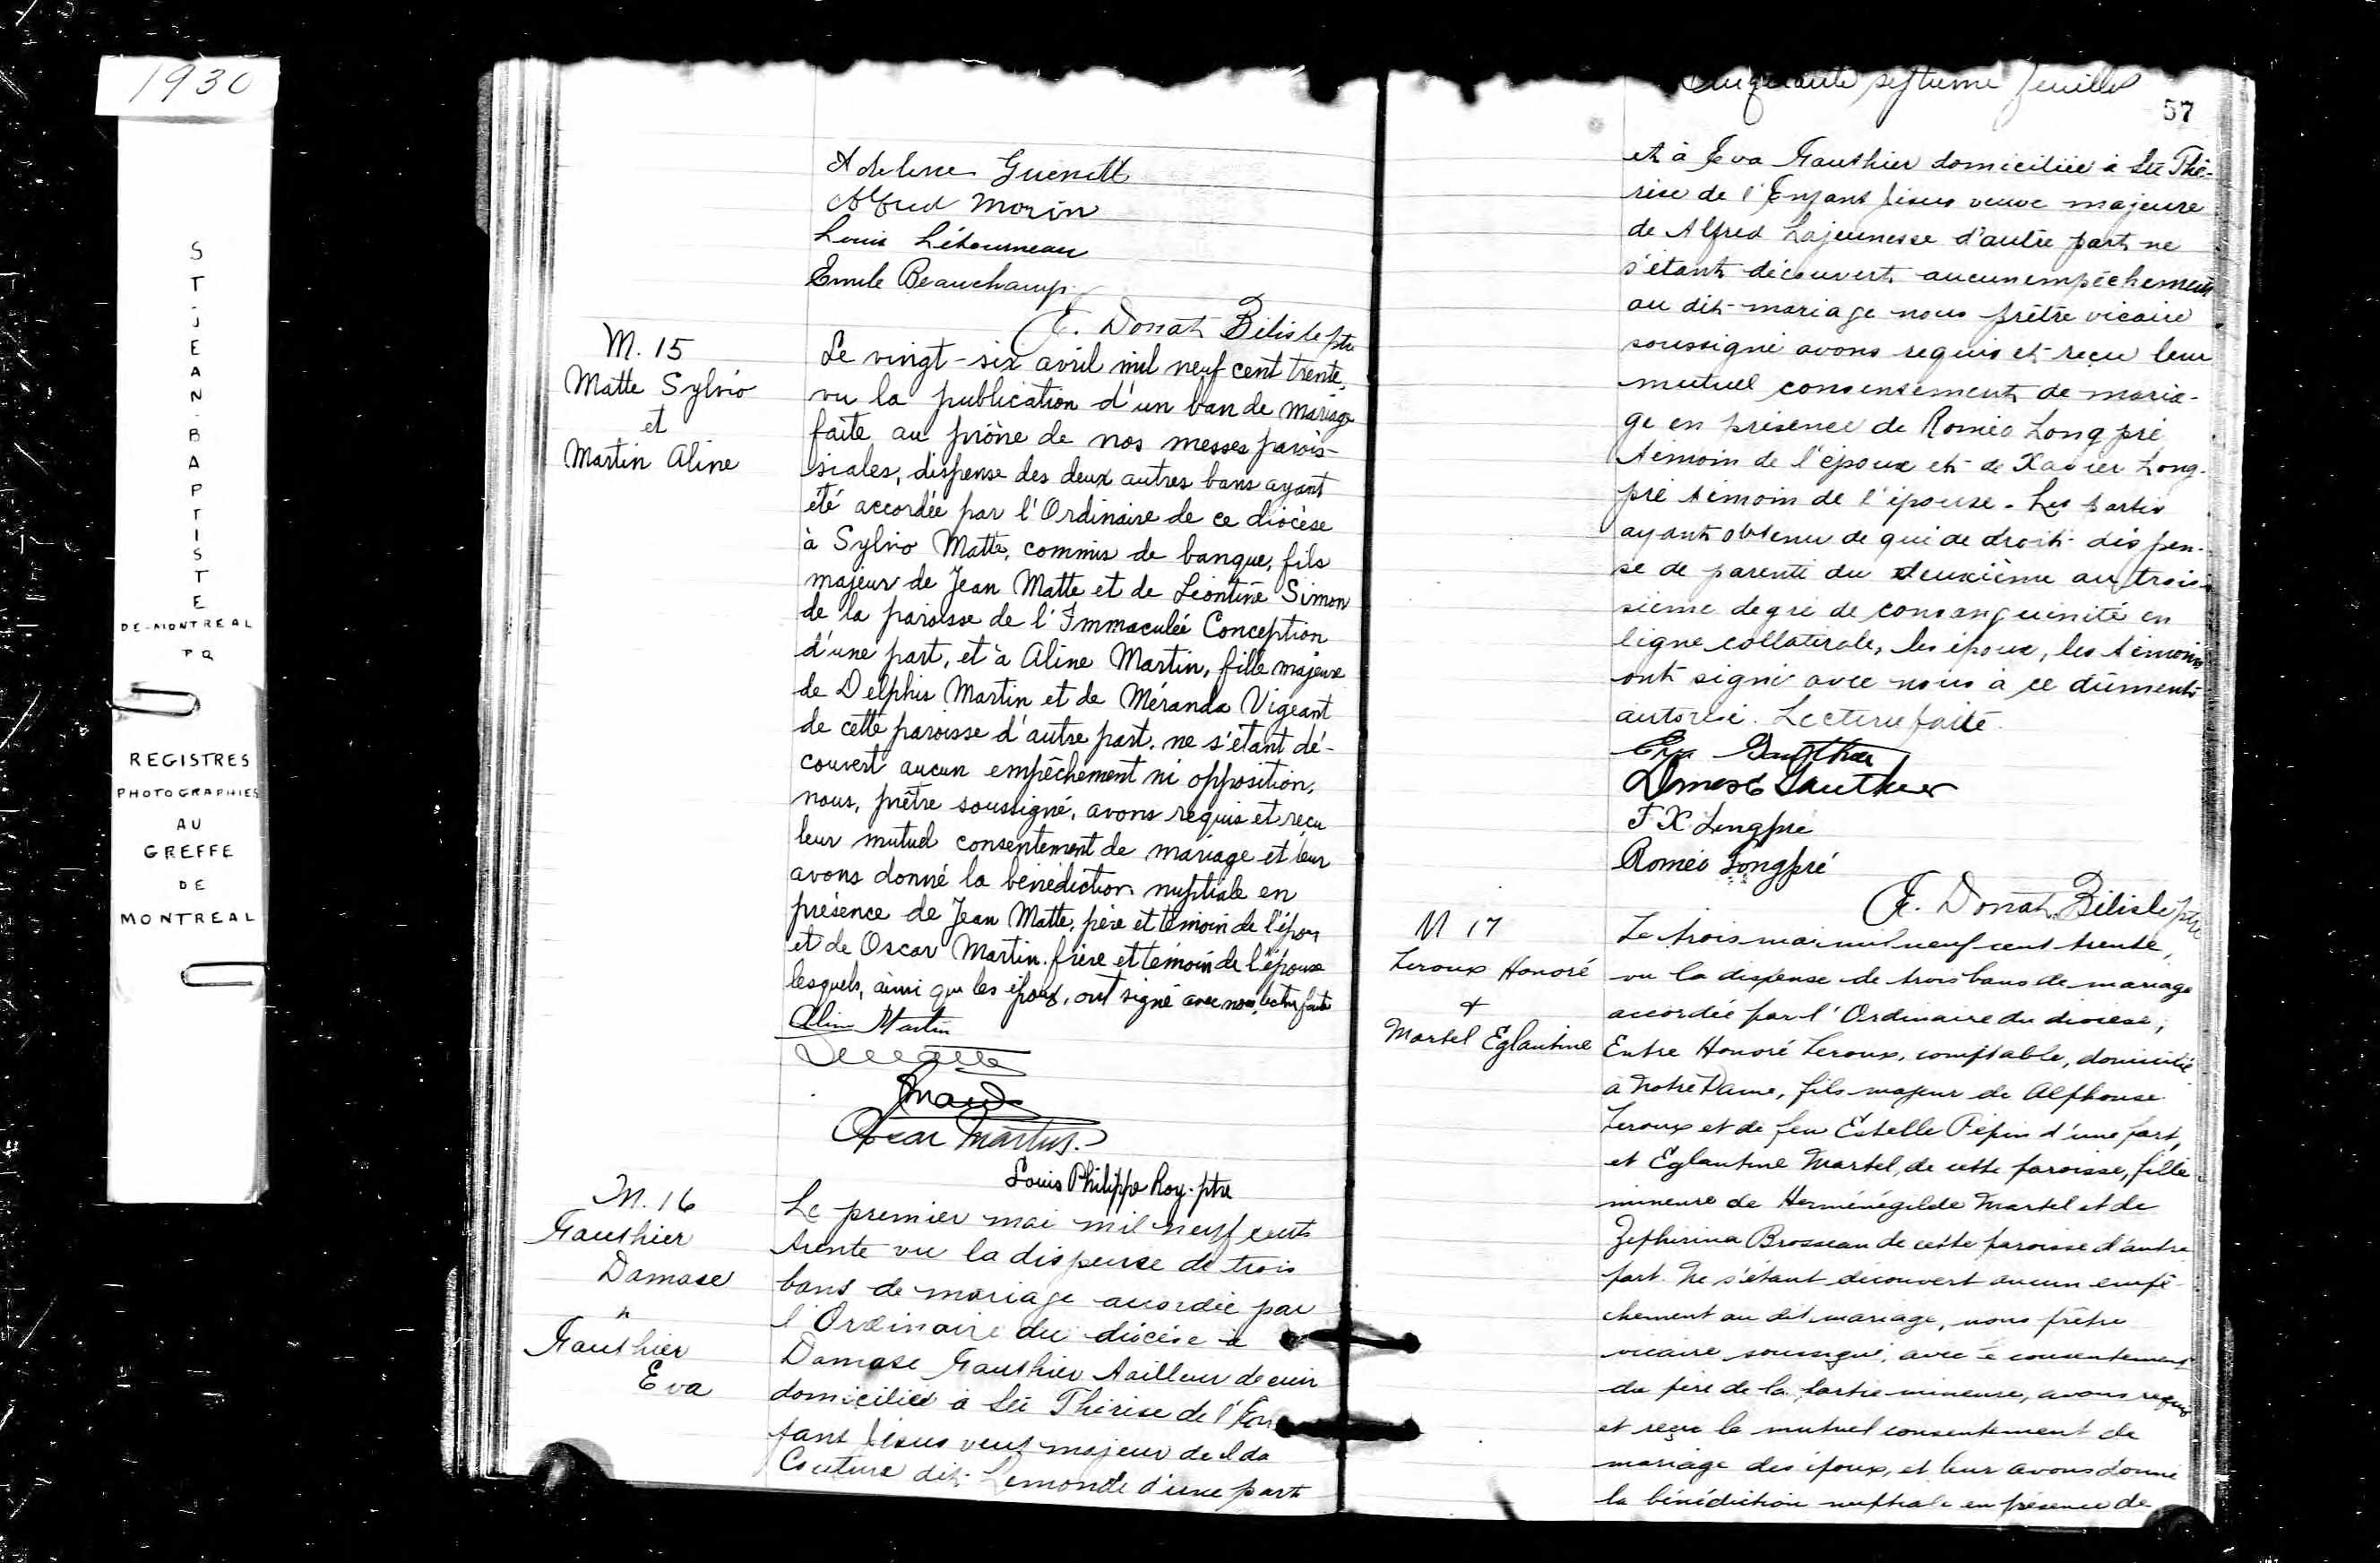 1930
ST-JEAN-BAPTISTE
DE-MONTREAL
PQ
REGISTRES
PHOTOGRAPHIES
AU
GREFFE
DE
MONTREAL
Alfred Morin
Louis Létourneau
Emile Beauchamp
E. Donat Bélisle ptre
M. 15
Matte Sylvio
et
Martin Aline
Le vingt-six avril mil neuf cent trente,
vu la publication d'un ban de mariage
faite au prône de nos messes parois-
siales, dispense des deux autres bans ayant
été accordée par l'Ordinaire de ce diocèse
à Sylvio Matte, commis de banque, fils
majeur de Jean Matte et de Léontine Simon
de la paroisse de l'Immaculée Conception
d'une part, et à Aline Martin, fille majeure
de Delphis Martin et de Méranda Vigeant
de cette paroisse d'autre part. ne s'étant dé-
couvert aucun empêchement ni opposition,
nous, prêtre soussigné, avons requis et reçu
leur mutuel consentement de mariage et leur
avons donné la bénédiction nuptiale en
présence de Jean Matte, père et témoin de l'époux
et de Oscar Martin frère et témoin de l'épouse
lesquels, ainsi que les époux, ont signé avec nous, lecture faite
Aline Martin
Oscar Martin
Louis Philippe Roy. ptre
M. 16
Gauthier
Damase
&
Gauthier
Eva
Le premier mai mil neuf cent
trente vu la dispense de trois
bans de mariage accordée par
l'Ordinaire du diocèse à
Damase Gauthier tailleur de cuir
domicilié à Ste Thérèse de l'En
fant Jésus veuf majeur de Ilda
Couture dit Lemonde d'une part
Cinquante septième feuillet
57
et à Eva Gauthier domiciliée à Ste Thé-
rèse de l'Enfant Jésus veuve majeure
de Alfred Lajeunesse d'autre part ne
s'étant découvert aucun empêchement
au dit mariage nous prêtre vicaire
soussigné avons requis et reçu leur
mutuel consensement de maria-
ge en présence de Roméo Longpré
témoin de l'époux et de Xavier Long-
pré témoin de l'épouse. Les parties
ayant obtenu de qui de droit dispen-
se de parenté du deuxième au troi-
sième degré de consanguinité en
ligne collatérale, les époux, les témoins
ont signé avec nous à ce dûment
autorisé. Lecture faite.
Eva Gauthier
Damase Gauthier
F X Longpré
Roméo Longpré
E. Donat Bélisle ptre
M 17
Leroux Honoré
+
Martel Eglantine
Le trois mai mil neuf cent trente,
vu la dispense de trois bans de mariage
accordée par l'Ordinaire du diocèse;
Entre Honoré Leroux, comptable, domicilié
à Notre Dame, fils majeur de Alphonse
Leroux et de feu Estelle Pépin d'une part,
et Eglantine Martel, de cette paroisse, fille
mineure de Herménégilde Martel et de
Zéphirina Brosseau de cette paroisse d'autre
part. Ne s'étant découvert aucun empê-
chement au dit mariage, nous prêtre
vicaire soussigné, avec le consentement
du père de la partie mineure, avons requis
et reçu le mutuel consentement de
mariage des époux, et leur avons donné
la bénédiction nuptiale en présence de